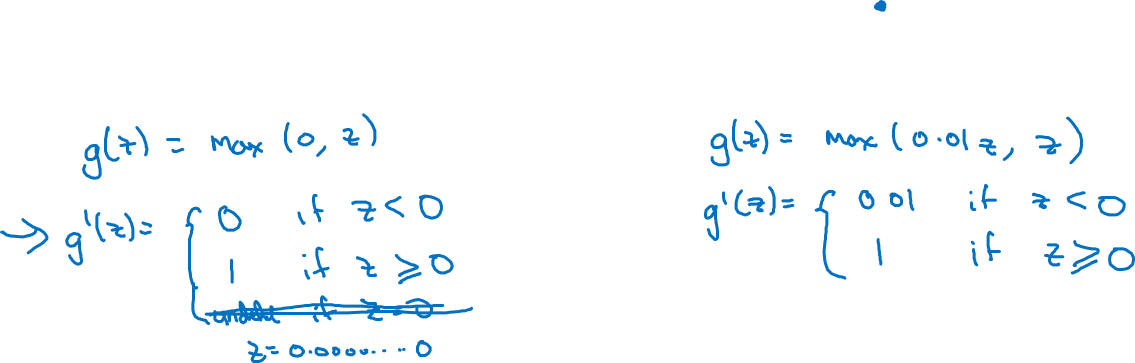 g(z) = max (0, z)
→ g'(z) = { 0 if z < 0
1 if z ⩾ 0
if z = 0
z = 0.0000.....0
g(z) = max (0.01z, z)
g'(z) = { 0.01 if z < 0
1 if z ⩾ 0